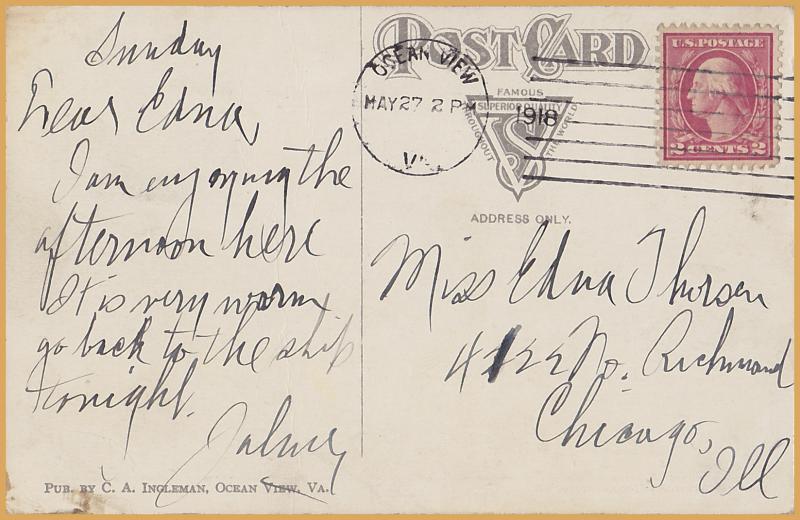 Sunday
Dear Edna,
I am enjoying the
afternoon here
It is very warm
go back to the ship
tonight.
PUB. BY C. A. INGLEMAN, OCEAN VIEW, VA.
POST CARD
OCEAN VIEW
MAY 27 2 PM
1918
VA.
U.S. POSTAGE
2 CENTS 2
FAMOUS
SUPERIOR QUALITY
THROUGHOUT
THE WORLD
ADDRESS ONLY.
Miss Edna Thorsen
4122 No. Richmond
Chicago,
Ill